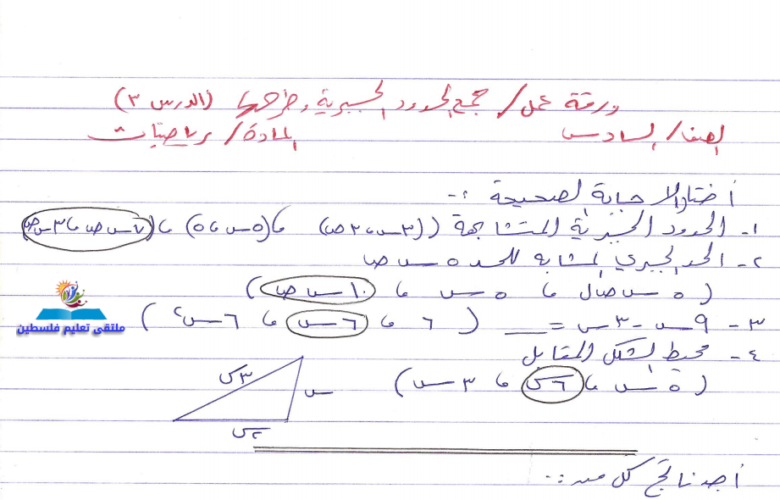 ورقة عمل / جمع الحدود الجبرية وطرحها (الدرس ٣)
الصف / السادس المادة / رياضيات
أختار الاجابة الصحيحة :-
١- الحدود الجبرية المتشابهة ((٣س ، ٢ص) ، (٥س ، ٥) ، (٧س ص ، ٣س ص)
٢- الحد الجبري المشابه للحد ٥ س ص
(٥ س ص ل ، ٥ س ، ١٠ س ص)
٣- ٩س - ٣س = __ (٦ ، ٦س ، ٦س٢)
ملتقى تعليم فلسطين
٤- محيط الشكل المقابل
(٥س ، ٦س ، ٣س)
٣س
س
٢س
أجد ناتج كل من :-